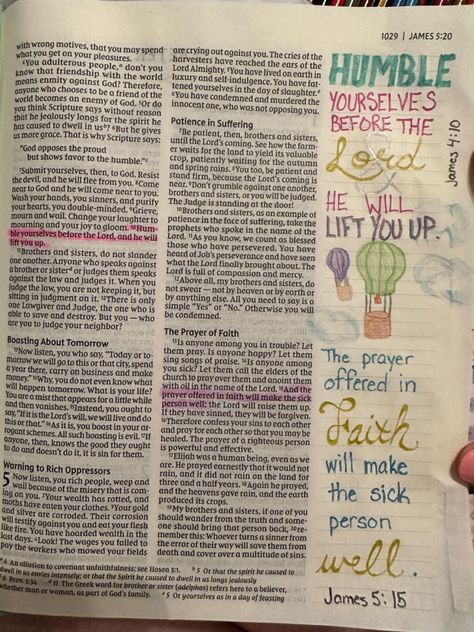 1029 | JAMES 5:20
with wrong motives, that you may spend
what you get on your pleasures.
4You adulterous people,a don't you
know that friendship with the world
means enmity against God? Therefore,
anyone who chooses to be a friend of the
world becomes an enemy of God. 5Or do
you think Scripture says without reason
that he jealously longs for the spirit he
has caused to dwell in usb? 6But he gives
us more grace. That is why Scripture says:
"God opposes the proud
but shows favor to the humble."c
7Submit yourselves, then, to God. Resist
the devil, and he will flee from you. 8Come
near to God and he will come near to you.
Wash your hands, you sinners, and purify
your hearts, you double-minded. 9Grieve,
mourn and wail. Change your laughter to
mourning and your joy to gloom. 10Hum-
ble yourselves before the Lord, and he will
lift you up.
11Brothers and sisters, do not slander
one another. Anyone who speaks against
a brother or sisterd or judges them speaks
against the law and judges it. When you
judge the law, you are not keeping it, but
sitting in judgment on it. 12There is only
one Lawgiver and Judge, the one who is
able to save and destroy. But you — who
are you to judge your neighbor?
Boasting About Tomorrow
13Now listen, you who say, "Today or to-
morrow we will go to this or that city, spend
a year there, carry on business and make
money." 14Why, you do not even know what
will happen tomorrow. What is your life?
You are a mist that appears for a little while
and then vanishes. 15Instead, you ought to
say, "If it is the Lord's will, we will live and do
this or that." 16As it is, you boast in your ar-
rogant schemes. All such boasting is evil. 17If
anyone, then, knows the good they ought
to do and doesn't do it, it is sin for them.
Warning to Rich Oppressors
5 Now listen, you rich people, weep and
wail because of the misery that is com-
ing on you. 2Your wealth has rotted, and
moths have eaten your clothes. 3Your gold
and silver are corroded. Their corrosion
will testify against you and eat your flesh
like fire. You have hoarded wealth in the
last days. 4Look! The wages you failed to
pay the workers who mowed your fields
are crying out against you. The cries of the
harvesters have reached the ears of the
Lord Almighty. 5You have lived on earth in
luxury and self-indulgence. You have fat-
tened yourselves in the day of slaughter.e
6You have condemned and murdered the
innocent one, who was not opposing you.
Patience in Suffering
7Be patient, then, brothers and sisters,
until the Lord's coming. See how the farm-
er waits for the land to yield its valuable
crop, patiently waiting for the autumn
and spring rains. 8You too, be patient and
stand firm, because the Lord's coming is
near. 9Don't grumble against one another,
brothers and sisters, or you will be judged.
The Judge is standing at the door!
10Brothers and sisters, as an example of
patience in the face of suffering, take the
prophets who spoke in the name of the
Lord. 11As you know, we count as blessed
those who have persevered. You have
heard of Job's perseverance and have seen
what the Lord finally brought about. The
Lord is full of compassion and mercy.
12Above all, my brothers and sisters, do
not swear — not by heaven or by earth or
by anything else. All you need to say is a
simple "Yes" or "No." Otherwise you will
be condemned.
The Prayer of Faith
13Is anyone among you in trouble? Let
them pray. Is anyone happy? Let them
sing songs of praise. 14Is anyone among
you sick? Let them call the elders of the
church to pray over them and anoint them
with oil in the name of the Lord. 15And the
prayer offered in faith will make the sick
person well; the Lord will raise them up.
If they have sinned, they will be forgiven.
16Therefore confess your sins to each other
and pray for each other so that you may be
healed. The prayer of a righteous person
is powerful and effective.
17Elijah was a human being, even as we
are. He prayed earnestly that it would not
rain, and it did not rain on the land for
three and a half years. 18Again he prayed,
and the heavens gave rain, and the earth
produced its crops.
19My brothers and sisters, if one of you
should wander from the truth and some-
one should bring that person back, 20re-
member this: Whoever turns a sinner from
the error of their way will save them from
death and cover over a multitude of sins.
a 4 An allusion to covenant unfaithfulness; see Hosea 3:1. b 5 Or that the spirit he caused to
dwell in us envies intensely; or that the Spirit he caused to dwell in us longs jealously
c 6 Prov. 3:34 d 11 The Greek word for brother or sister (adelphos) refers here to a believer,
whether man or woman, as part of God's family. e 5 Or yourselves as in a day of feasting
HUMBLE
YOURSELVES
BEFORE THE
Lord
HE WILL
LIFT YOU UP.
James 4:10
The prayer
offered in
Faith
will make
the sick
person
well.
James 5:15